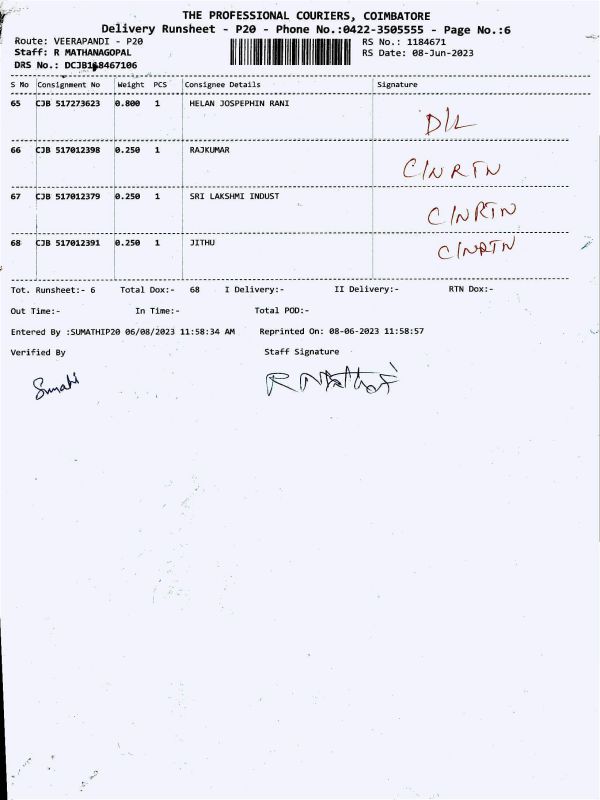 THE PROFESSIONAL COURIERS, COIMBATORE
Delivery Runsheet - P20 - Phone No.:0422-3505555 - Page No.:6
Route: VEERAPANDI - P20 RS No.: 1184671
Staff: R MATHANAGOPAL RS Date: 08-Jun-2023
DRS No.: DCJB168467106
S No Consignment No Weight PCS Consignee Details Signature
65 CJB 517273623 0.800 1 HELAN JOSPEPHIN RANI D/L
66 CJB 517012398 0.250 1 RAJKUMAR C/N RTN
67 CJB 517012379 0.250 1 SRI LAKSHMI INDUST C/N RTN
68 CJB 517012391 0.250 1 JITHU C/N RTN
Tot. Runsheet:- 6 Total Dox:- 68 I Delivery:- II Delivery:- RTN Dox:-
Out Time:- In Time:- Total POD:-
Entered By :SUMATHIP20 06/08/2023 11:58:34 AM Reprinted On: 08-06-2023 11:58:57
Verified By Staff Signature
Sumathi